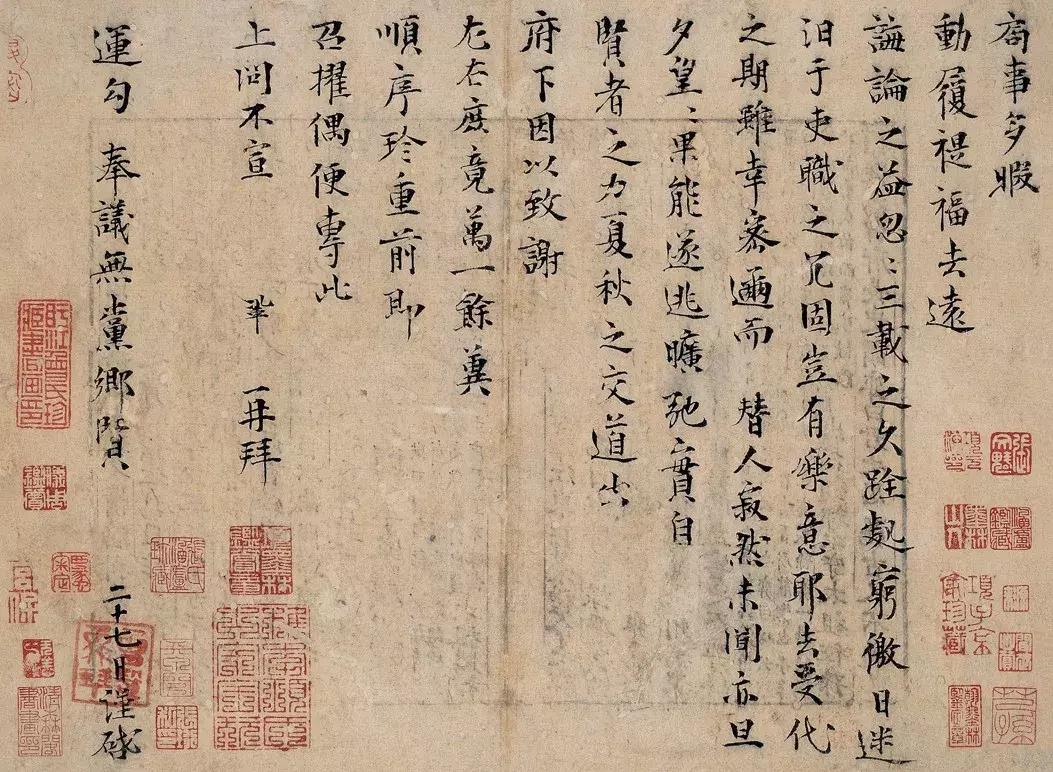 局事多暇
動履禔福去遠
誨論之益忽〻三載之久跧處窮徼日迷
汩于吏職之冗固豈有樂意耶去受代
之期雖幸密邇而　替人寂然未聞亦旦
夕望〻果能遂逃曠弛實自
賢者之力夏秋之交道出
府下因以致謝
左右庶竟萬一餘冀
順序珍重前即
召擢偶便專此
上問不宣　鞏　再拜
運勾　奉議無黨鄉賢　二十七日謹啟
項子京家珍藏